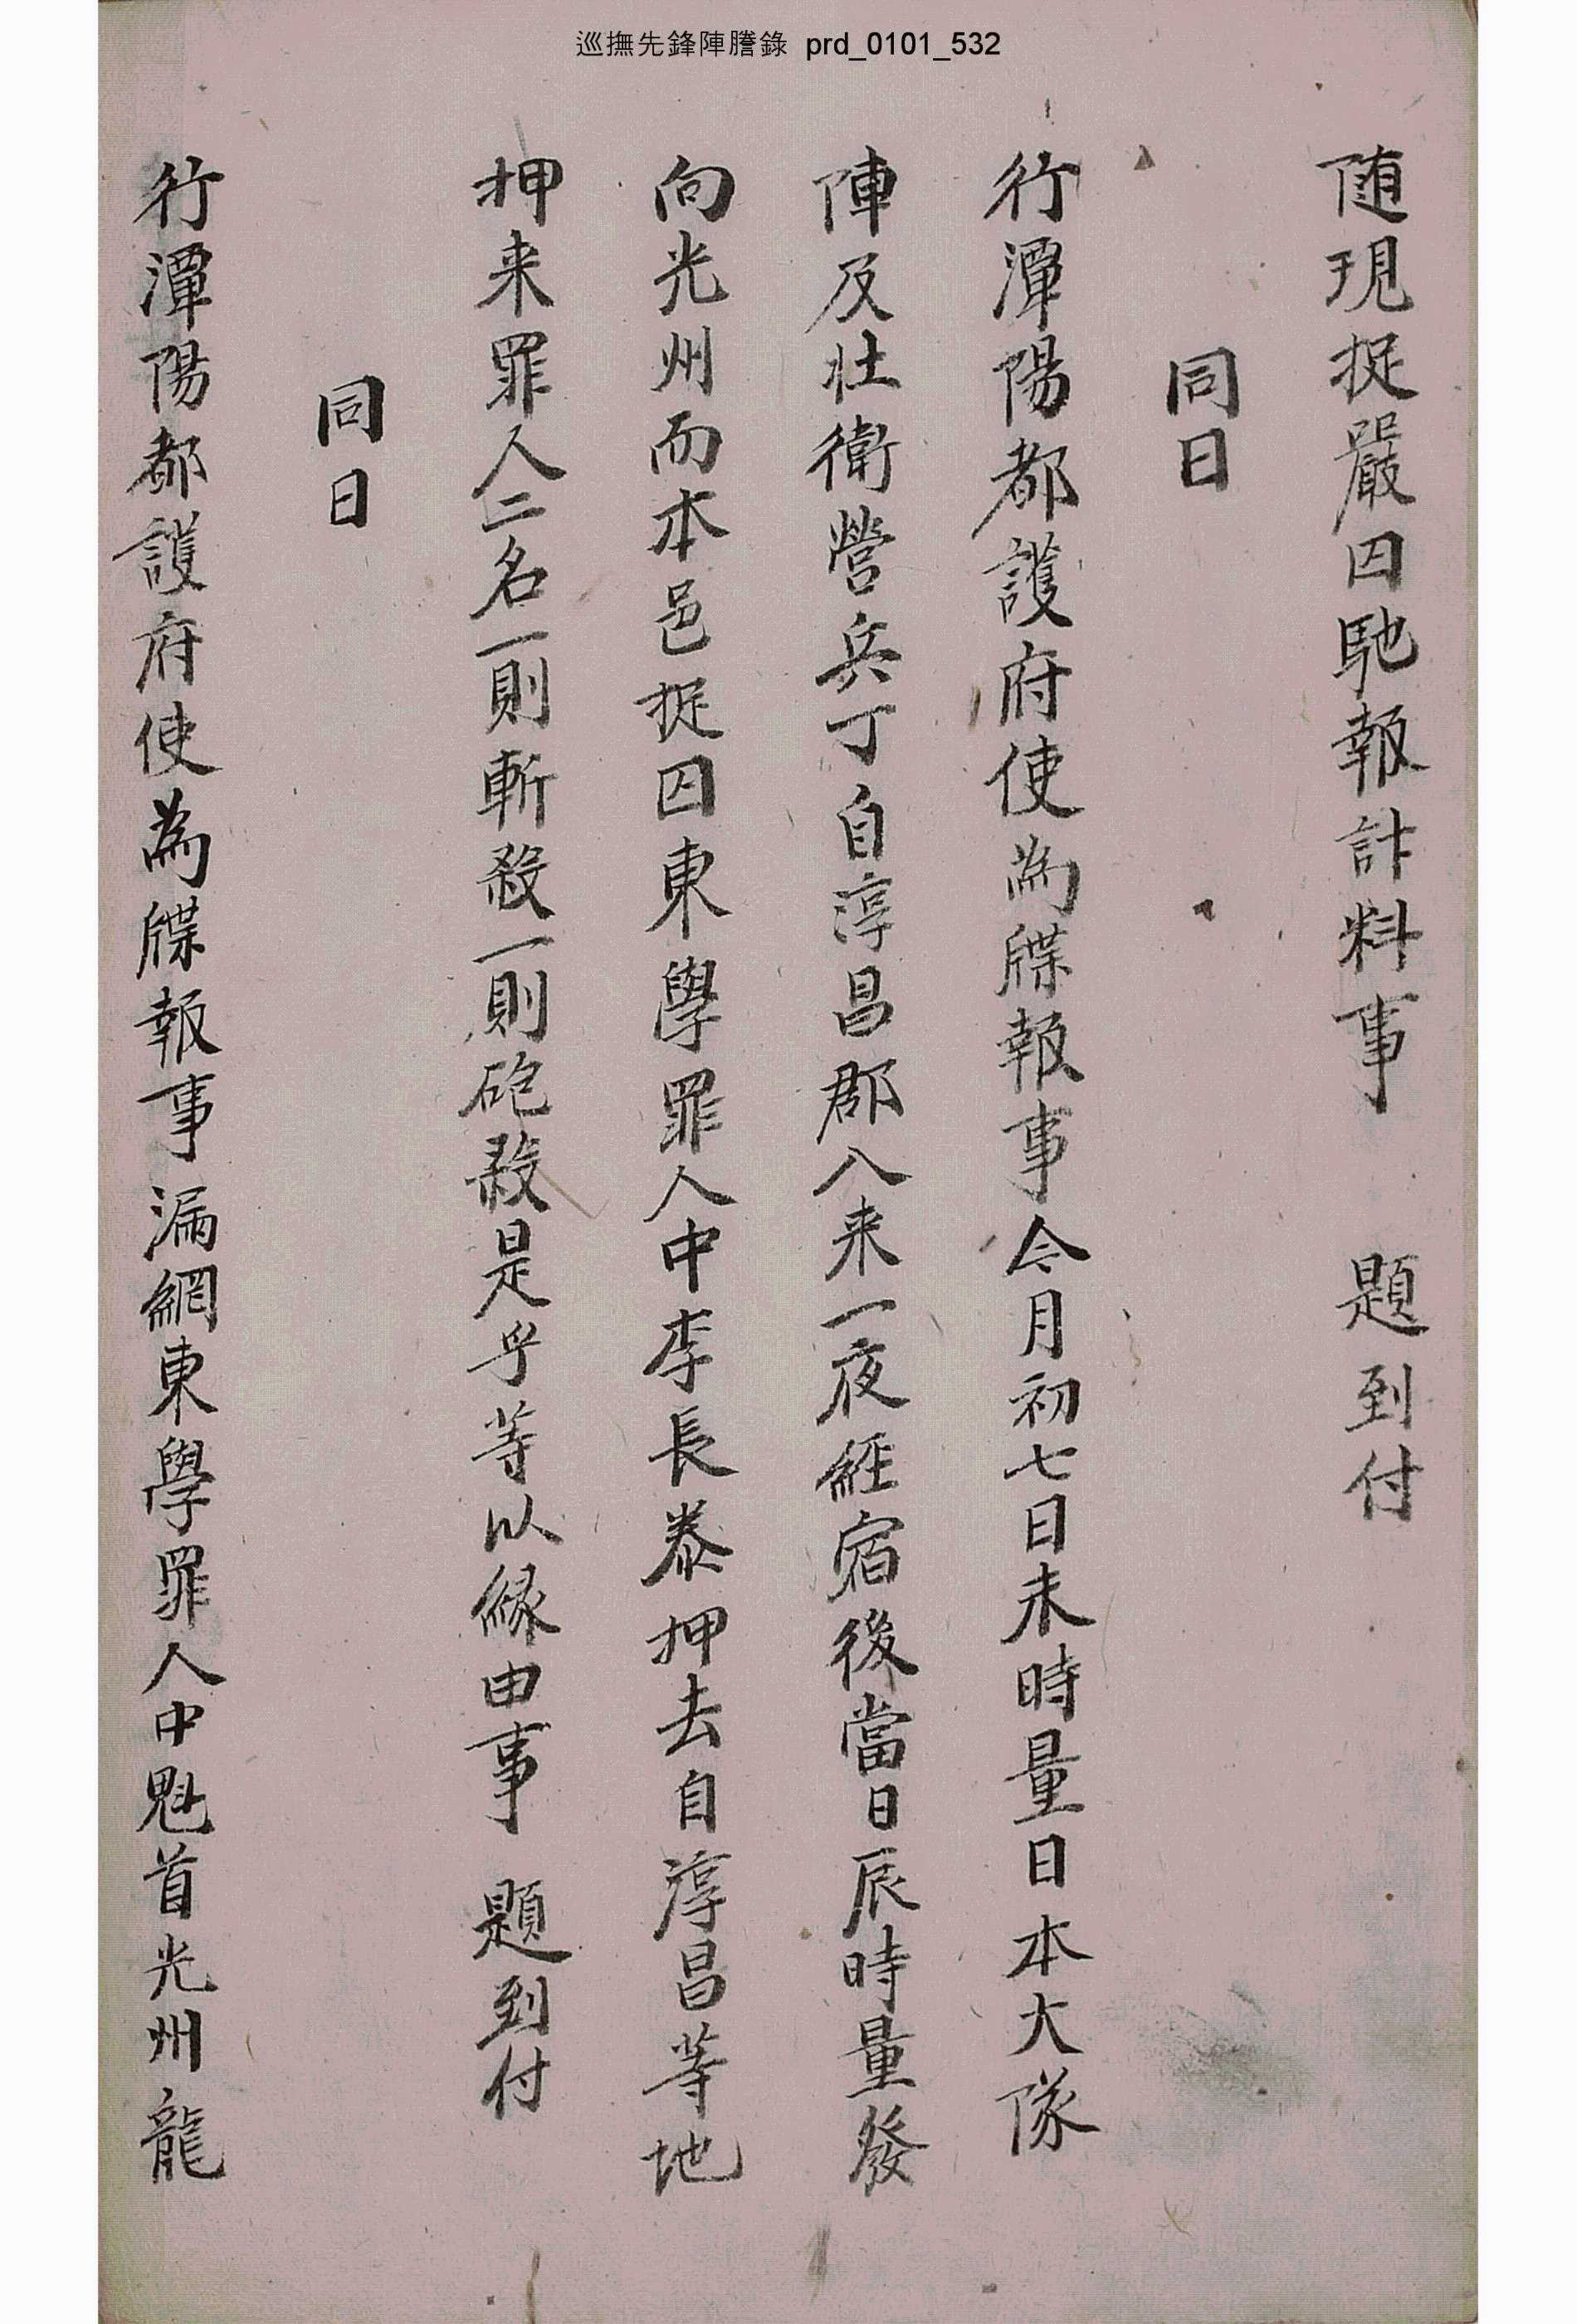 巡撫先鋒陣謄錄 prd_0101_532
随現捉嚴囚馳報計料事 題到付
同日
行潭陽都護府使為牒報事今月初七日未時量日本大隊
陣及壯衛營兵丁自淳昌郡入来一夜經宿後當日辰時量發
向光州而本邑捉囚東學罪人中李長泰押去自淳昌等地
押来罪人二名一則斬殺一則砲殺是乎等以緣由事 題到付
同日
行潭陽都護府使為牒報事漏網東學罪人中魁首光州龍